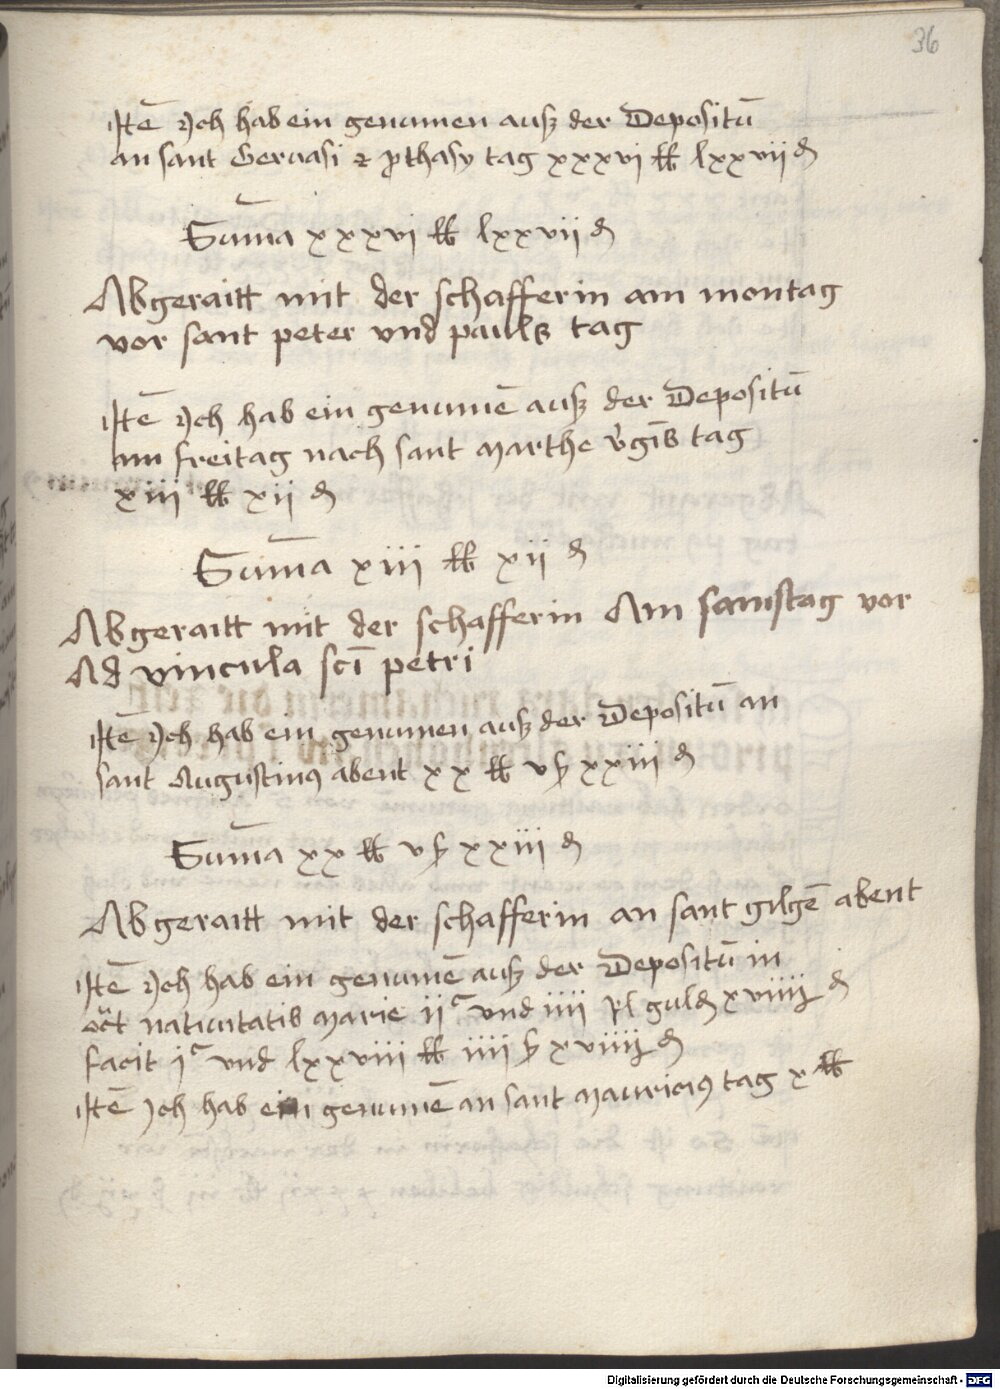 36
Itē Jch hab ein genumen ausz der Depositū
an sant Geruasi ⁊ ꝓthasy tag xxxvi ℔ lxxvii ₰
Sum̄a xxxvi ℔ lxxvii ₰
Abgeraitt mit der schafferin am montag
vor sant peter vnd pauls tag
Itē Jch hab ein genumē ausz der Depositū
am freitag nach sant Marthe v̓gīs tag
xiii ℔ xii ₰
Sum̄a xiii ℔ xii ₰
Abgeraitt mit der schafferin Am samstag vor
Ad vincula scī petri
Itē Jch hab ein genumen ausz der Depositū an
sant Augustinꝰ abent xx ℔ v ꝭ xxiii ₰
Sum̄a xx ℔ v ꝭ xxiii ₰
Abgeraitt mit der schafferin an sant gilgē abent
Itē Jch hab ein genumē ausz der Depositū in
oct̄ natiuitatis Marie iiᶜ vnd iiii Rl guld xviiii ₰
facit iᶜ vnd lxxviii ℔ iiii ꝭ xviiii ₰
Itē Jch hab ein genumē an sant Mauriciꝰ tag x ℔
Digitalisierung gefördert durch die Deutsche Forschungsgemeinschaft - DFG